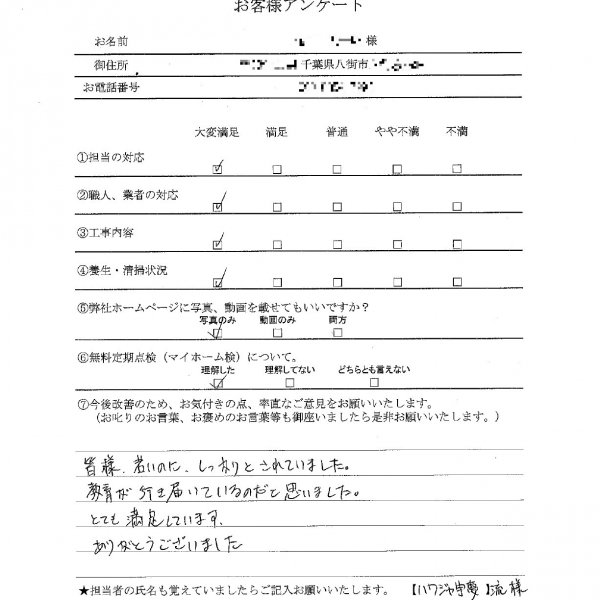 お客様アンケート
お名前 様
御住所 千葉県八街市
お電話番号
大変満足 満足 普通 やや不満 不満
①担当の対応
②職人、業者の対応
③工事内容
④養生・清掃状況
⑤弊社ホームページに写真、動画を載せてもいいですか？
写真のみ 動画のみ 両方
⑥無料定期点検（マイホーム検）について。
理解した 理解してない どちらとも言えない
⑦今後改善のため、お気付きの点、率直なご意見をお願いいたします。
（お叱りのお言葉、お褒めのお言葉等も御座いましたら是非お願いいたします。）
皆様、若いのに、しっかりとされていました。
教育が行き届いているのだと思いました。
とても満足しています。
ありがとうございました
★担当者の氏名も覚えていましたらご記入お願いいたします。 【ハワジャ 】 様